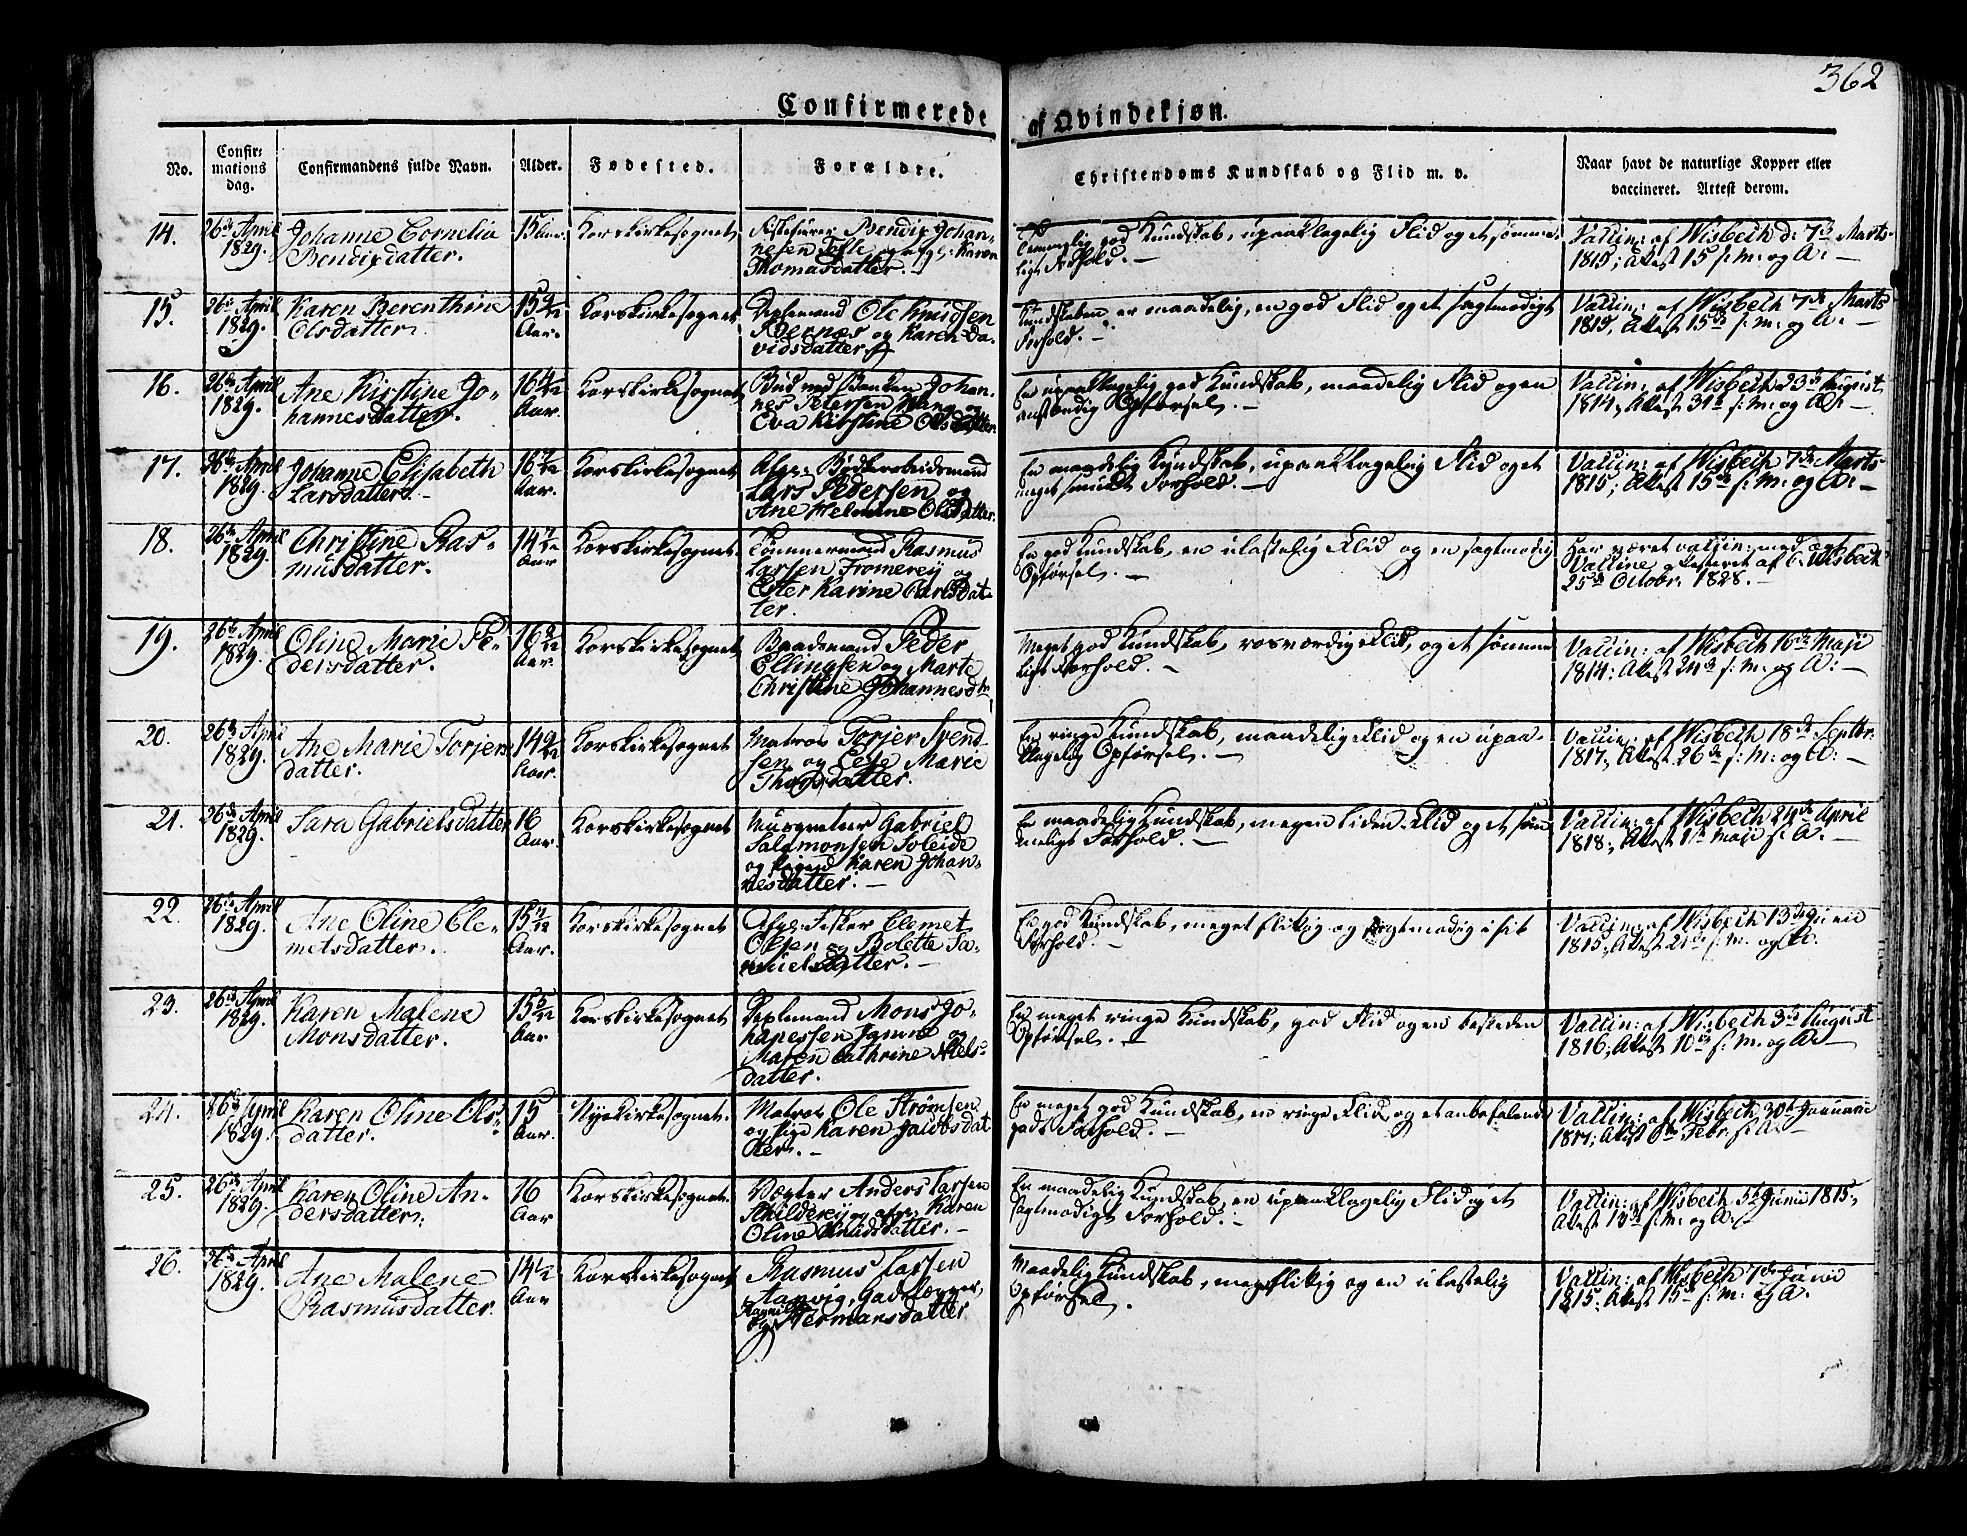 362
Confirmerede af Qvindekjøn.
No.
Confir-
mations
dag.
Confirmandens fulde Navn.
Alder.
Fødested.
Forældre.
Christendoms Kundskab og Flid m. v.
Naar havt de naturlige Kopper eller
vaccineret. Attest derom.
14.
26de April
1829.
Johanne Cornelia
Bendixdatter.
15 Aar.
Korskirkesognet
Bendix Johan-
nesen Tofte og afg: Karen
Thomasdatter.
god Kundskab, upaaklagelig Flid og et sømme-
ligt Forhold. —
Vaccin: af Wisbech d: 7de Marts
1815; Attest 15 s: M: og A: —
15.
26de April
1829.
Karen Berenthine
Olsdatter.
15 Aar.
Korskirkesognet
Ole Knudsen
og Karen Da-
vidsdatter.
Kundskaben er maadelig, en god Flid og et sagtmodigt
Forhold. —
Vaccin: af Wisbech 7de Marts
1815, Attest 15de s: M: og A: —
16.
26de April
1829.
Ane Kirstine Jo-
hannesdatter.
16 4/12
Aar.
Korskirkesognet
Bud ved Banken Johan-
nes Petersen Wang og
Eva Kirstine Olsdatter.
En upaaklagelig god Kundskab, maadelig Flid og en
anstændig Opførsel. —
Vaccin: af Wisbech 23de August
1814, Attest 31te s: M: og A: —
17.
26de April
1829.
Johanne Elisabeth
Larsdatter. —
16 7/12
Aar.
Korskirkesognet
Afg:
Lars Pedersen og
Ane Helmine Olsdatter.
En maadelig Kundskab, upaaklagelig Flid og et
meget smukt Forhold. —
Vaccin: af Wisbech 7de Marts
1815; Attest 15de s: M: og A: —
18.
26de April
1829.
Christine Ras-
musdatter.
14 7/12
Aar
Korskirkesognet.
Tømmermand Rasmus
Larsen Fromereij og
Ester Karine Carlsdat-
ter.
En god Kundskab, en ulastelig Flid og en sagtmodig
Opførsel. —
Har været vaccin: med ægt
Vaccine, attesteret af C: Wisbech
25de Octobr: 1828. —
19.
26de April
1829.
Oline Marie Pe-
dersdatter.
16
Aar.
Korskirkesognet
Baadsmand Peder
Ellingsen og Marte
Christine Johannesdtr
Meget god Kundskab, rosværdig Flid, og et sømme-
ligt Forhold. —
Vaccin: af Wisbech 16de Maji
1814: Attest 24de s: M: og A: —
20.
26de April
1829.
Ane Marie Torjers-
datter.
14
Aar.
Korskirkesognet
Matros Torjer Svend-
sen og Marie
En ringe Kundskab, maadelig Flid og en upaa-
klagelig Opførsel. —
Vaccin: af Wisbech 18de Septbr:
1817, Attest 26de s: M: og A: —
21.
26de April
1829.
Sara Gabrielsdatter
16
Aar.
Korskirkesognet
Musqueteer Gabriel
Salomonsen Soleide
og Pigen Karen Johan-
nesdatter. —
En maadelig Kundskab, megen liden Flid og et søm-
meligt Forhold. —
Vaccin: af Wisbech 24de April
1818, Attest 1te Maji s: A: —
22.
26de April
1829.
Ane Oline Cle-
metsdatter.
15
Aar.
Korskirkesognet
Afg: Fisker Clemet
Olsen og Bolette Sa-
muelsdatter. —
En god Kundskab, meget flittig og sagtmodig i sit
Forhold. —
Vaccin: af Wisbech 13de Junii
1815, Attest 21de s: M: og A:
23.
26de April
1829.
Karen Malene
Monsdatter.
15
Aar
Korskirkesognet
Mons Jo-
hanessen og
Maren Cathrine Niels-
datter.
En meget ringe Kundskab, god Flid og en beskeden
Opførsel. —
Vaccin: af Wisbech 3de August
1816, Attest 10de s: M: og A: —
24.
26de April
1829.
Karen Oline Ols-
datter.
15
Aar.
Nyekirkesognet.
Matros Ole Strømsen
og Pige Karen Jacobsdat
ter. —
En meget god Kundskab, en ringe Flid og et anbefalende
godt Forhold. —
Vaccin: af Wisbech 30te Januarii
1817; Attest Febr. s: A: —
25.
26de April
1829.
Karen Oline An-
dersdatter.
16
Aar
Korskirkesognet.
Vægter Anders Larsen
og afg: Karen
Oline Knudsdatter. —
En maadelig Kundskab, en upaaklagelig Flid og et
sagtmodigt Forhold. —
Vaccin: af Wisbech 5te Junii 1815,
Attest 13de s: M: og A: —
26.
26de April
1829.
Ane Malene
Rasmusdatter.
14 1/2
Aar
Korskirkesognet
Rasmus Larsen
Aanvig,
og Hermansdatter
Maadelig Kundskab, meget flittig og en ulastelig
Opførsel.
Vaccin: af Wisbech 7de Junii
1815; Attest 15de s: M: og A.